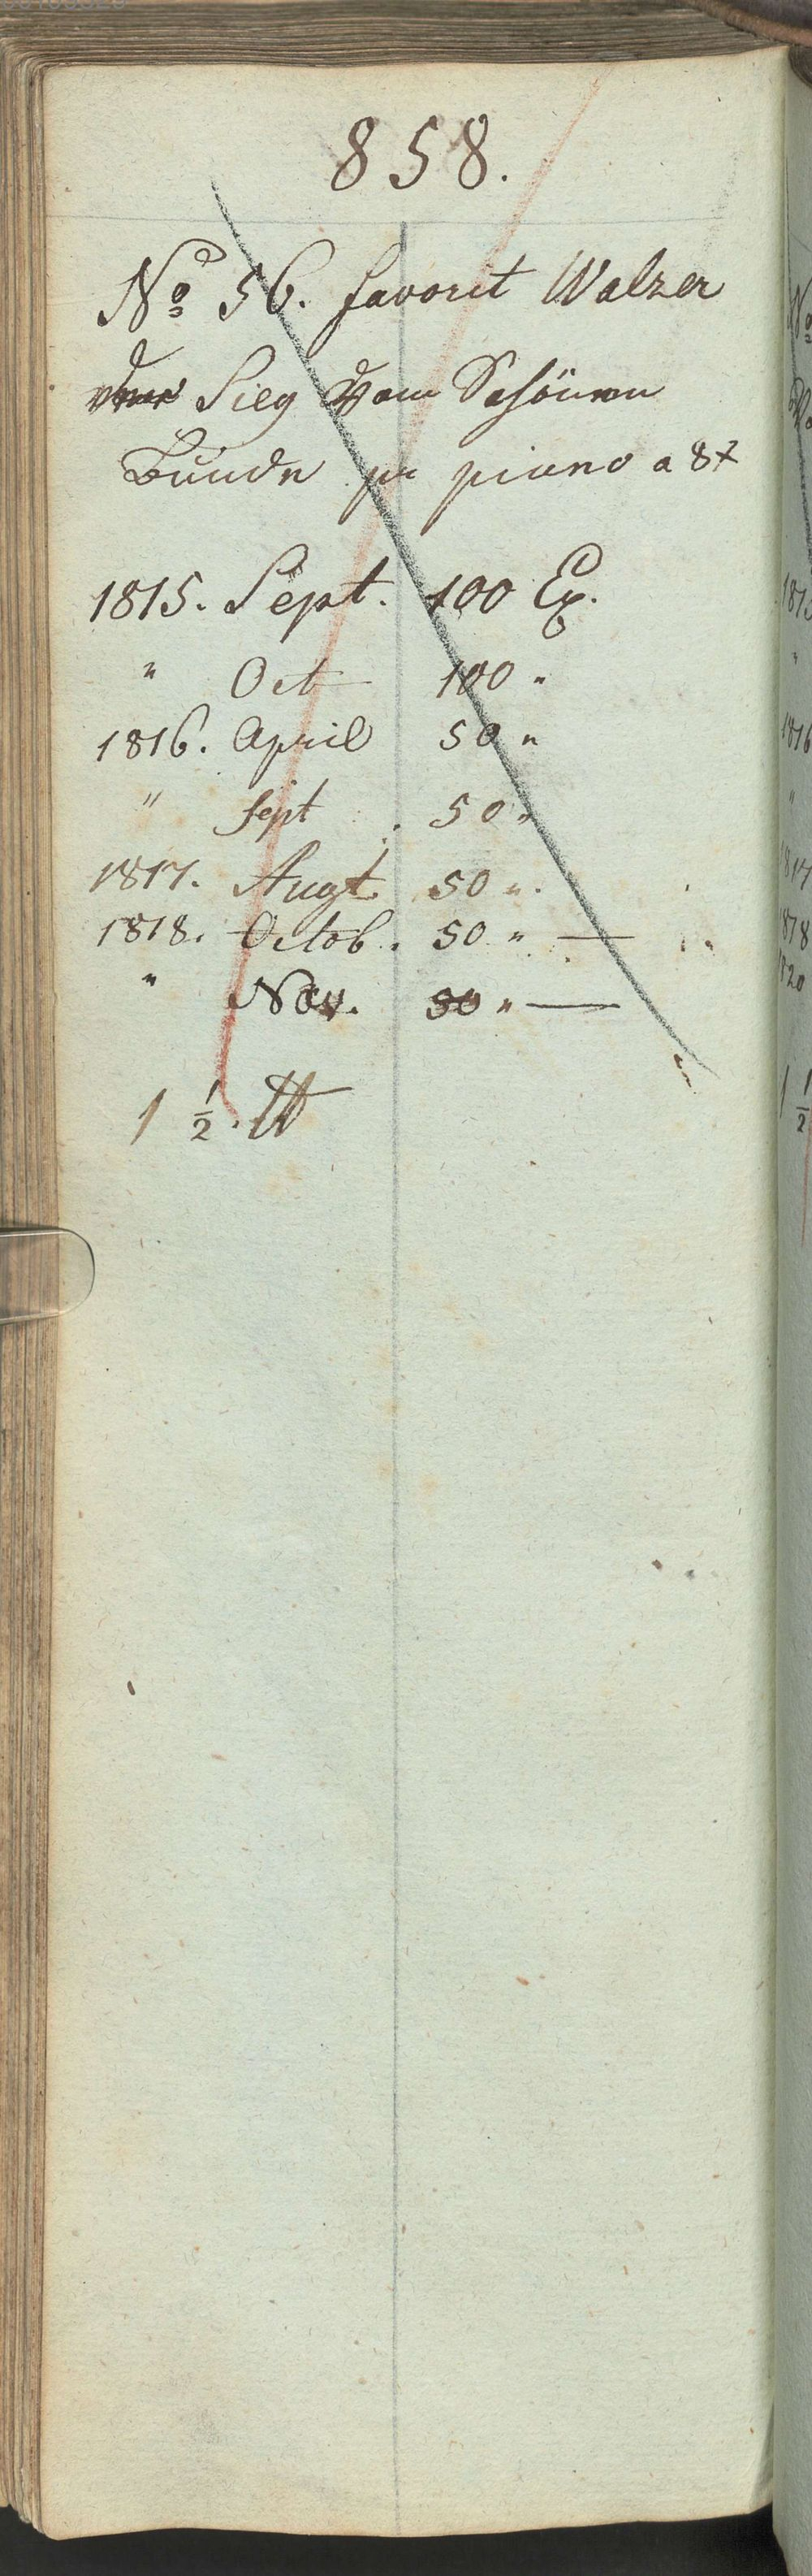 858.
No 56. favorit Walzer
der Sieg vom Schönen
Bunde pr piano a 8x
1815. Sept. 100 Ex.
" Oct 100 "
1816. April 50 "
" Sept . 50 "
1817. Augt 50 ".
1818. Octob. 50 " —
" Nov. 50 " —
1 1/2. ℔